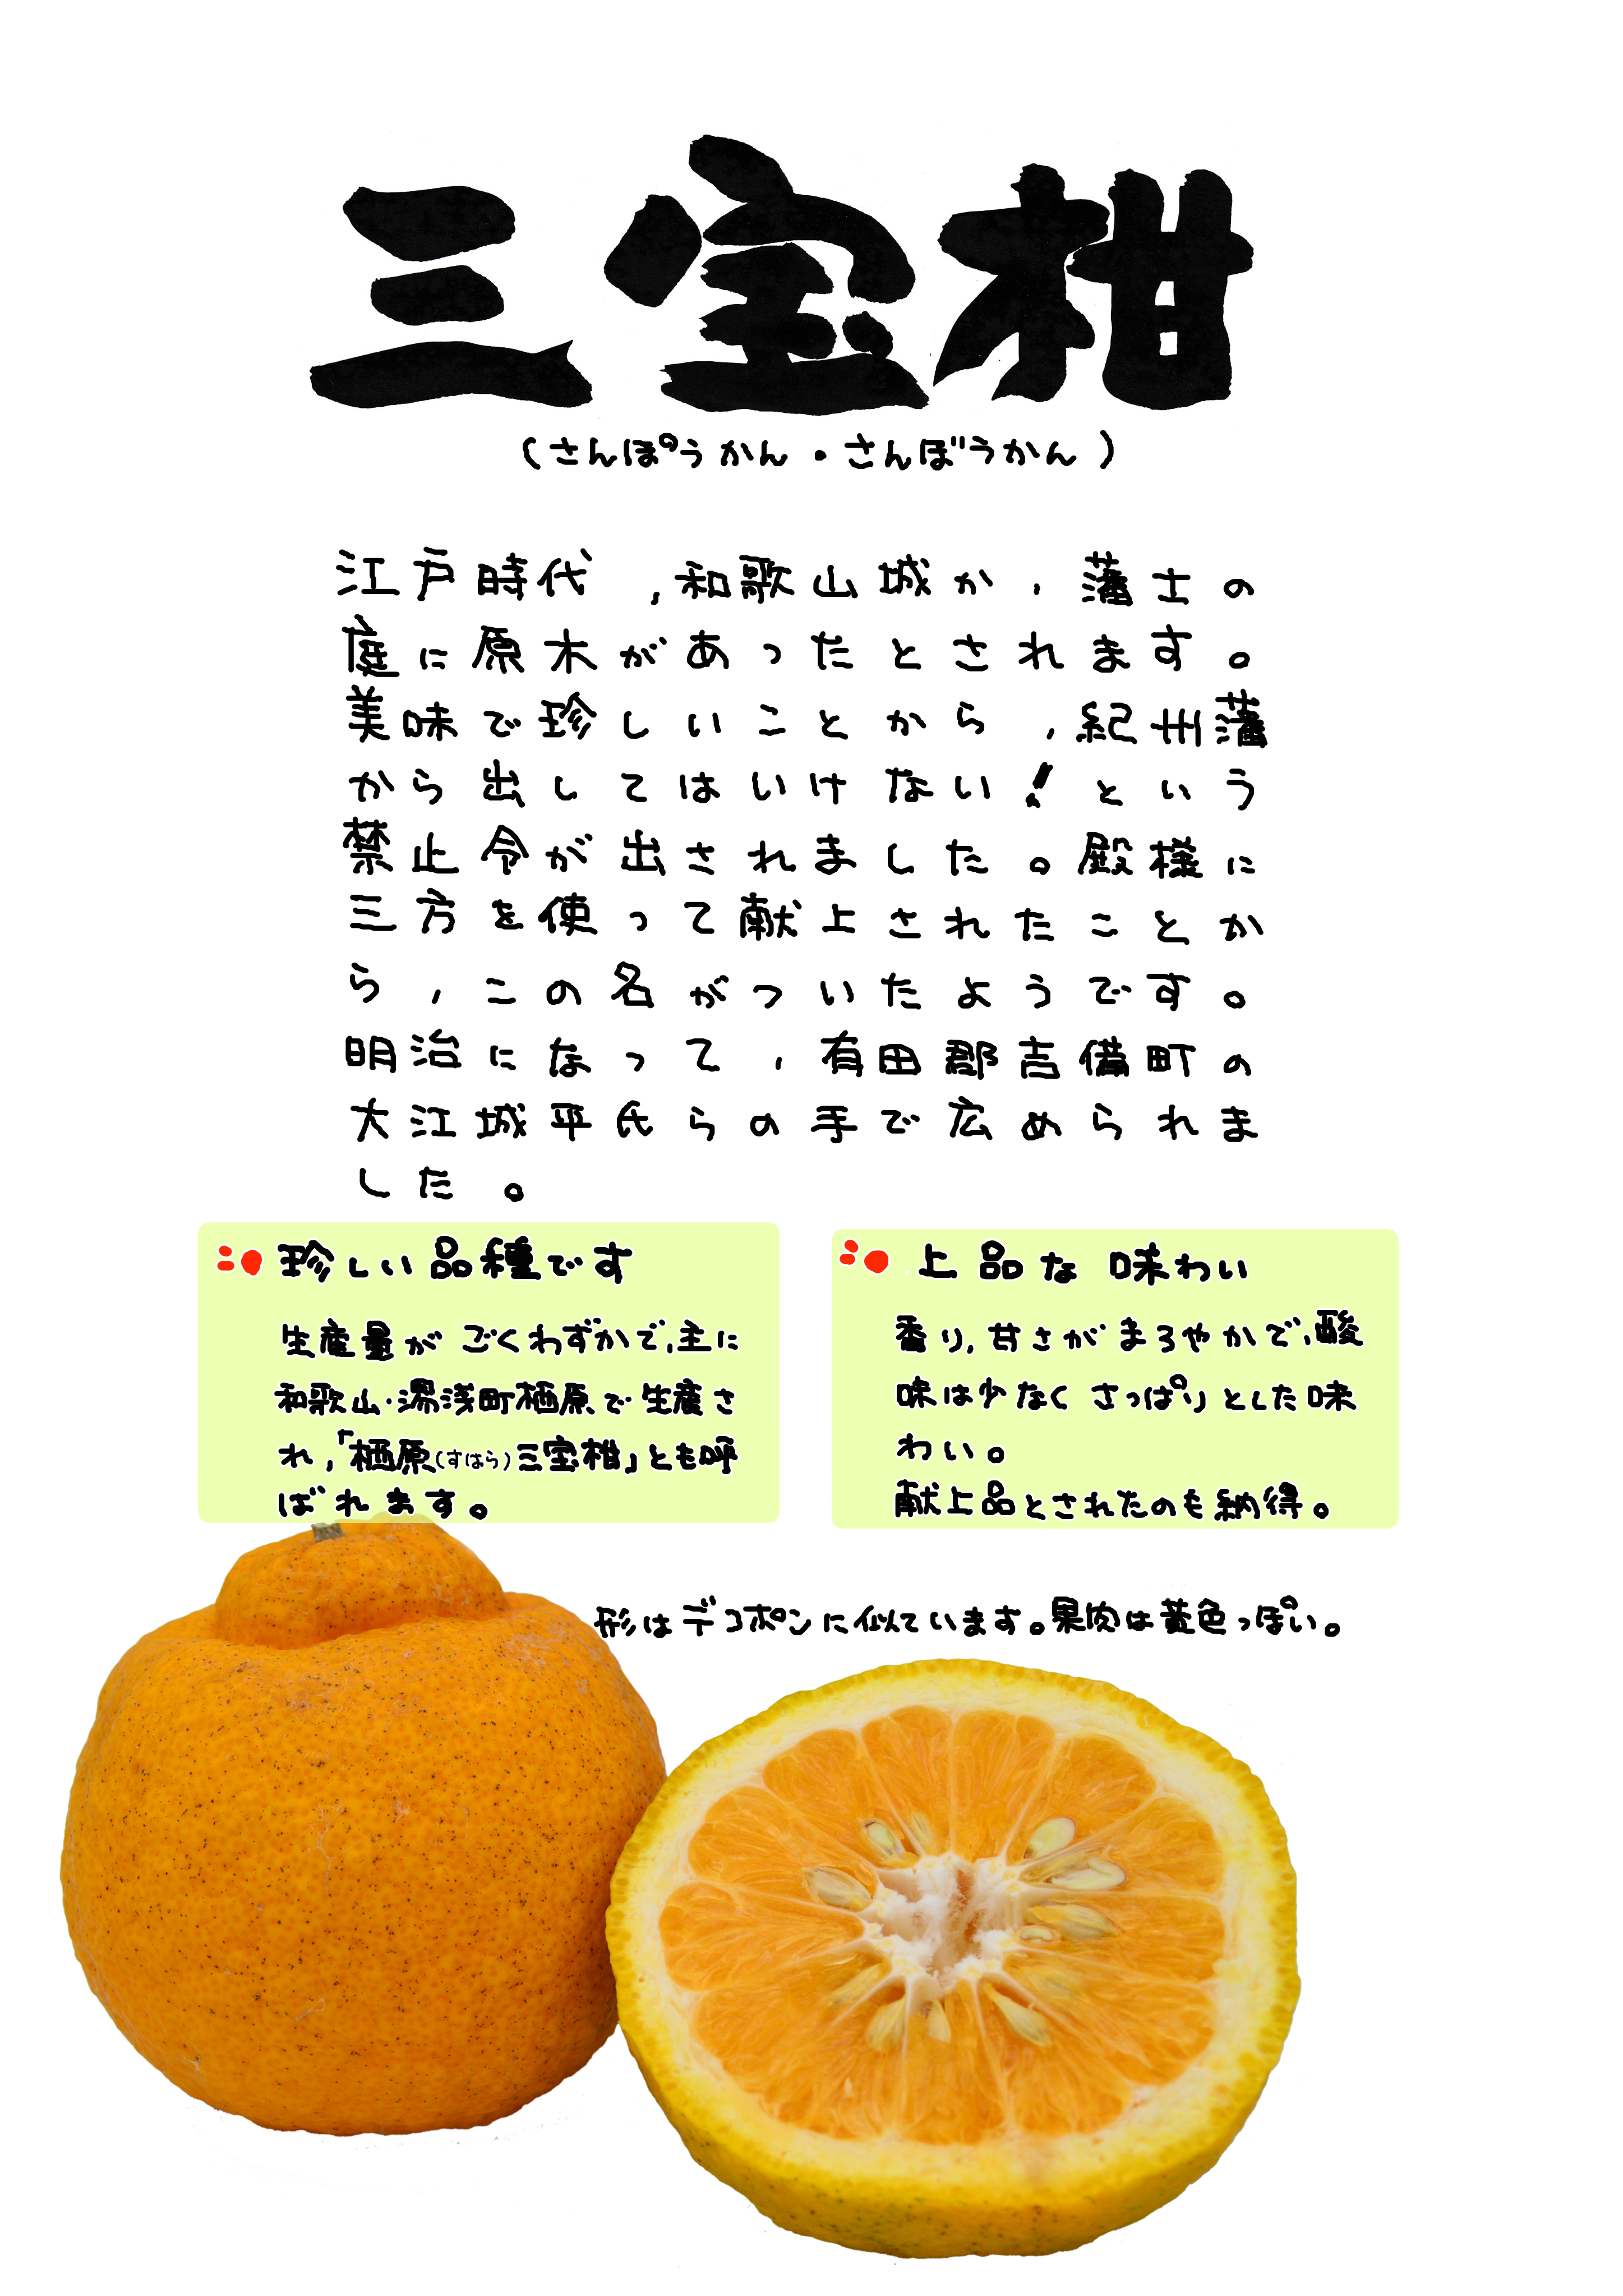 三宝柑
(さんぽうかん・さんぼうかん)
江戸時代,和歌山城か,藩士の
庭に原木があったとされます。
美味で珍しいことから,紀州藩
から出してはいけない!という
禁止令が出されました。殿様に
三方を使って献上されたことか
ら,この名がついたようです。
明治になって,有田郡吉備町の
大江城平氏らの手で広められま
した。
珍しい品種です
生産量がごくわずかで,主に
和歌山・湯浅町栖原で生産さ
れ,「栖原(すはら)三宝柑」とも呼
ばれます。
上品な味わい
香り,甘さがまろやかで,酸
味は少なくさっぱりとした味
わい。
献上品とされたのも納得。
形はデコポンに似ています。果肉は黄色っぽい。